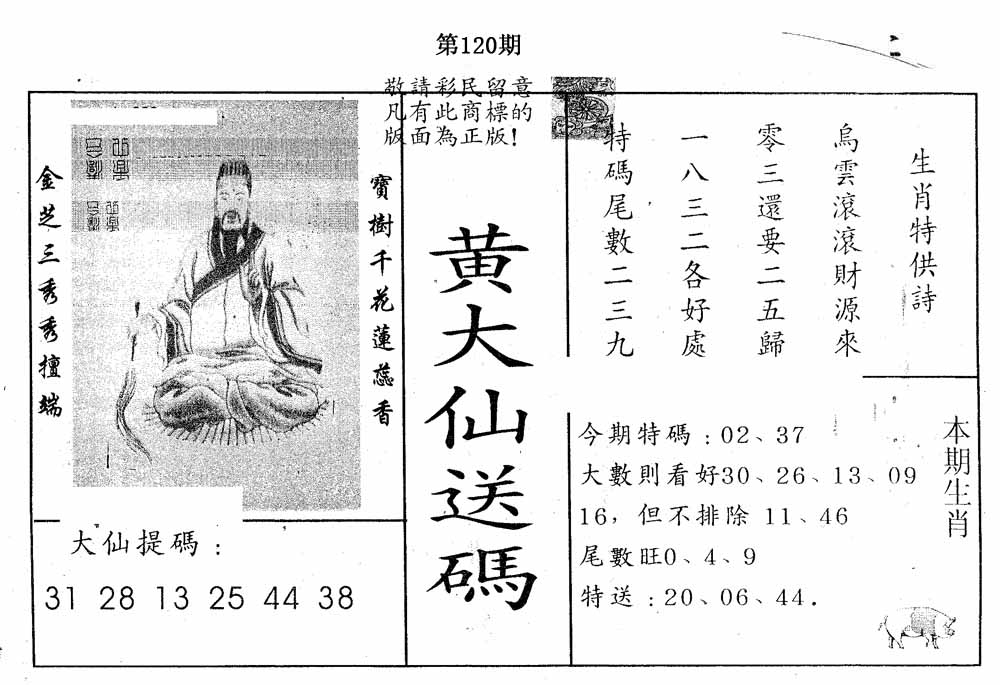 第120期
敬請彩民留意
凡有此商標的
版面為正版!
金芝三秀秀擅端
寶樹千花蓮蕊香
黄大仙送碼
生肖特供詩
烏雲滾滾財源來
零三還要二五歸
一八三二各好處
特碼尾數二三九
大仙提碼:
31 28 13 25 44 38
本期生肖
今期特碼:02、37
大數則看好30、26、13、09
16，但不排除 11、46
尾數旺0、4、9
特送:20、06、44.